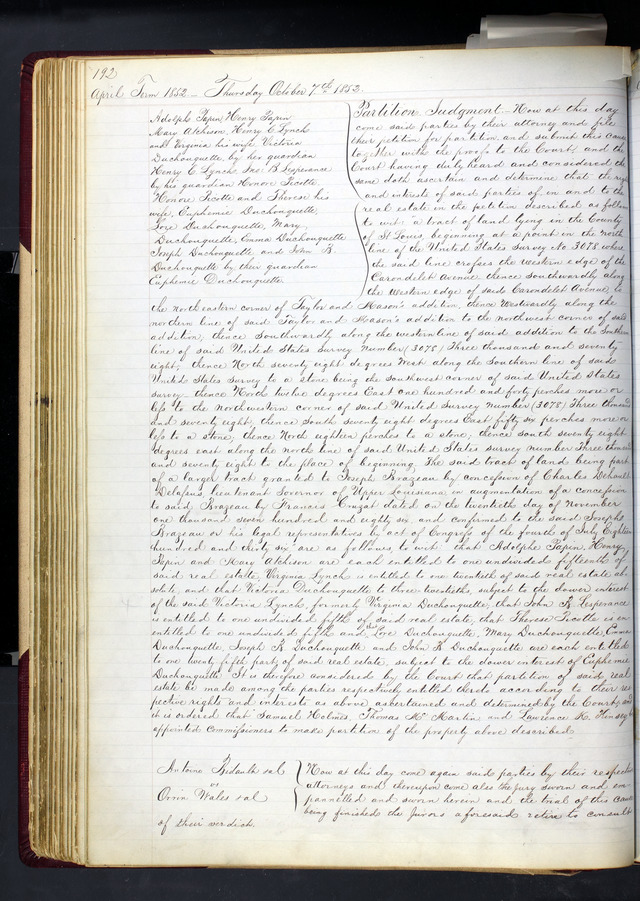 192
April Term 1852 — Thursday October 7th 1852.
Adolphe Papin Henry Papin
Mary Atchison, Henry C Lynch
and Virginia his wife, Victoria
Duchouquette, by her guardian
Henry C Lynch, Jno. B Lesperance
by his guardian Honore Picotte
Honore Picotte and Therese his
wife, Euphemie Duchouquette,
Lore Duchouquette, Mary
Duchouquette, Emma Duchouquette
Joseph Duchouquette and John B.
Duchouquette by their guardian
Euphemie Duchouquette.
Partition Judgment — Now at this day
come said parties by their attorney and file
their petition for partition, and submit this cause
together with the proofs to the Court, and the
Court having duly heard and considered the
same doth ascertain and determine that the right
and interests of said parties of, in and to the
real estate in the petition described as follows
to wit: a tract of land lying in the County
of St Louis, beginning at a point in the north
line of the United States Survey No. 3078 where
the said line crosses the western edge of the
Carondelet Avenue, thence southwardly along
the western edge of said Carondelet Avenue, to
the north eastern corner of Taylor and Mason's addition, thence Westwardly along the
northern line of said Taylor and Mason's addition to the northwest corner of said
addition; thence southwardly along the western line of said addition to the Southern
line of said United States Survey Number (3078) Three thousand and seventy-
eight; thence North seventy eight degrees West along the Southern line of said
United States Survey to a stone being the southwest corner of said United States
survey — thence North twelve degrees East one hundred and forty perches more or
less to the northwestern corner of said United Survey number (3078) Three thousand
and seventy eight; thence south seventy eight degrees East, fifty six perches more or
less to a stone; thence North eighteen perches to a stone; thence south seventy eight
degrees east along the north line of said United States survey number Three thousand
and seventy eight to the place of beginning. The said tract of land being part
of a larger tract granted to Joseph Brazeau by concession of Charles Dehault
Delassus, lieutenant Governor of Upper Louisiana in augmentation of a concession
to said Brazeau by Francis Cruzat dated on the twentieth day of November
one thousand seven hundred and eighty six and confirmed to the said Joseph
Brazeau or his legal representatives by act of Congress of the fourth of July Eighteen
hundred and thirty six are as follows, to wit: that Adolphe Papin, Henry
Papin and Mary Atchison are each entitled to one undivided fifteenth of
said real estate, Virginia Lynch is entitled to one twentieth of said real estate ab-
solute, and that Victoria Duchouquette to three twentieths, subject to the dower interest
of the said Victoria Lynch, formerly Virginia Duchouquette; that John B Lesperance
is entitled to one undivided fifth of said real estate, that Therese Picotte is en-
entitled to one undivided fifth and that Lore Duchouquette, Mary Duchouquette, Emma
Duchouquette, Joseph R Duchouquette and John B Duchouquette are each entitled
to one twenty fifth part of said real estate, subject to the dower interest of Euphemie
Duchouquette. It is therefore considered by the Court that partition of said real
estate be made among the parties respectively entitled thereto according to their res-
pective rights and interests as above ascertained and determined by the Court; and
it is ordered that Samuel Holmes, Thomas Mc Martin and Laurence K. Kinsey
appointed Commissioners to make partition of the property above described.
Antoine Bidault et al
vs
Orrin Wales et al
Now at this day come again said parties by their respective
attorneys and thereupon come also the jury sworn and em-
pannelled and sworn herein and the trial of this cause
being finished the jurors aforesaid retire to consult
of their verdict.